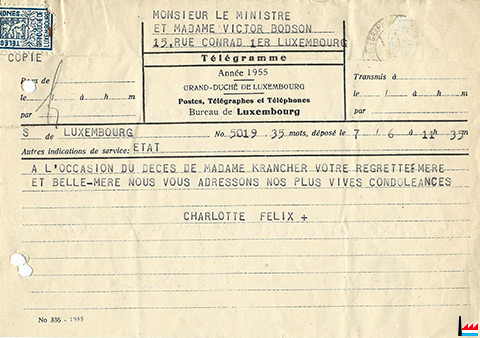 MONSIEUR LE MINISTRE
ET MADAME VICTOR BODSON
15, RUE CONRAD 1ER LUXEMBOURG
COPIE
Télégramme
Année 1955
GRAND-DUCHÉ DE LUXEMBOURG
Postes, Télégraphes et Téléphones
Bureau de Luxembourg
Reçu de
le / à h m
par
Transmis à
le / à h m
par
S de LUXEMBOURG No 5019 35 mots, déposé le 7 / 6 11 H 35 m
Autres indications de service: ETAT
A L'OCCASION DU DECES DE MADAME KRANCHER VOTRE REGRETTEE MERE
ET BELLE-MERE NOUS VOUS ADRESSONS NOS PLUS VIVES CONDOLEANCES
CHARLOTTE FELIX +
No 336 - 1955